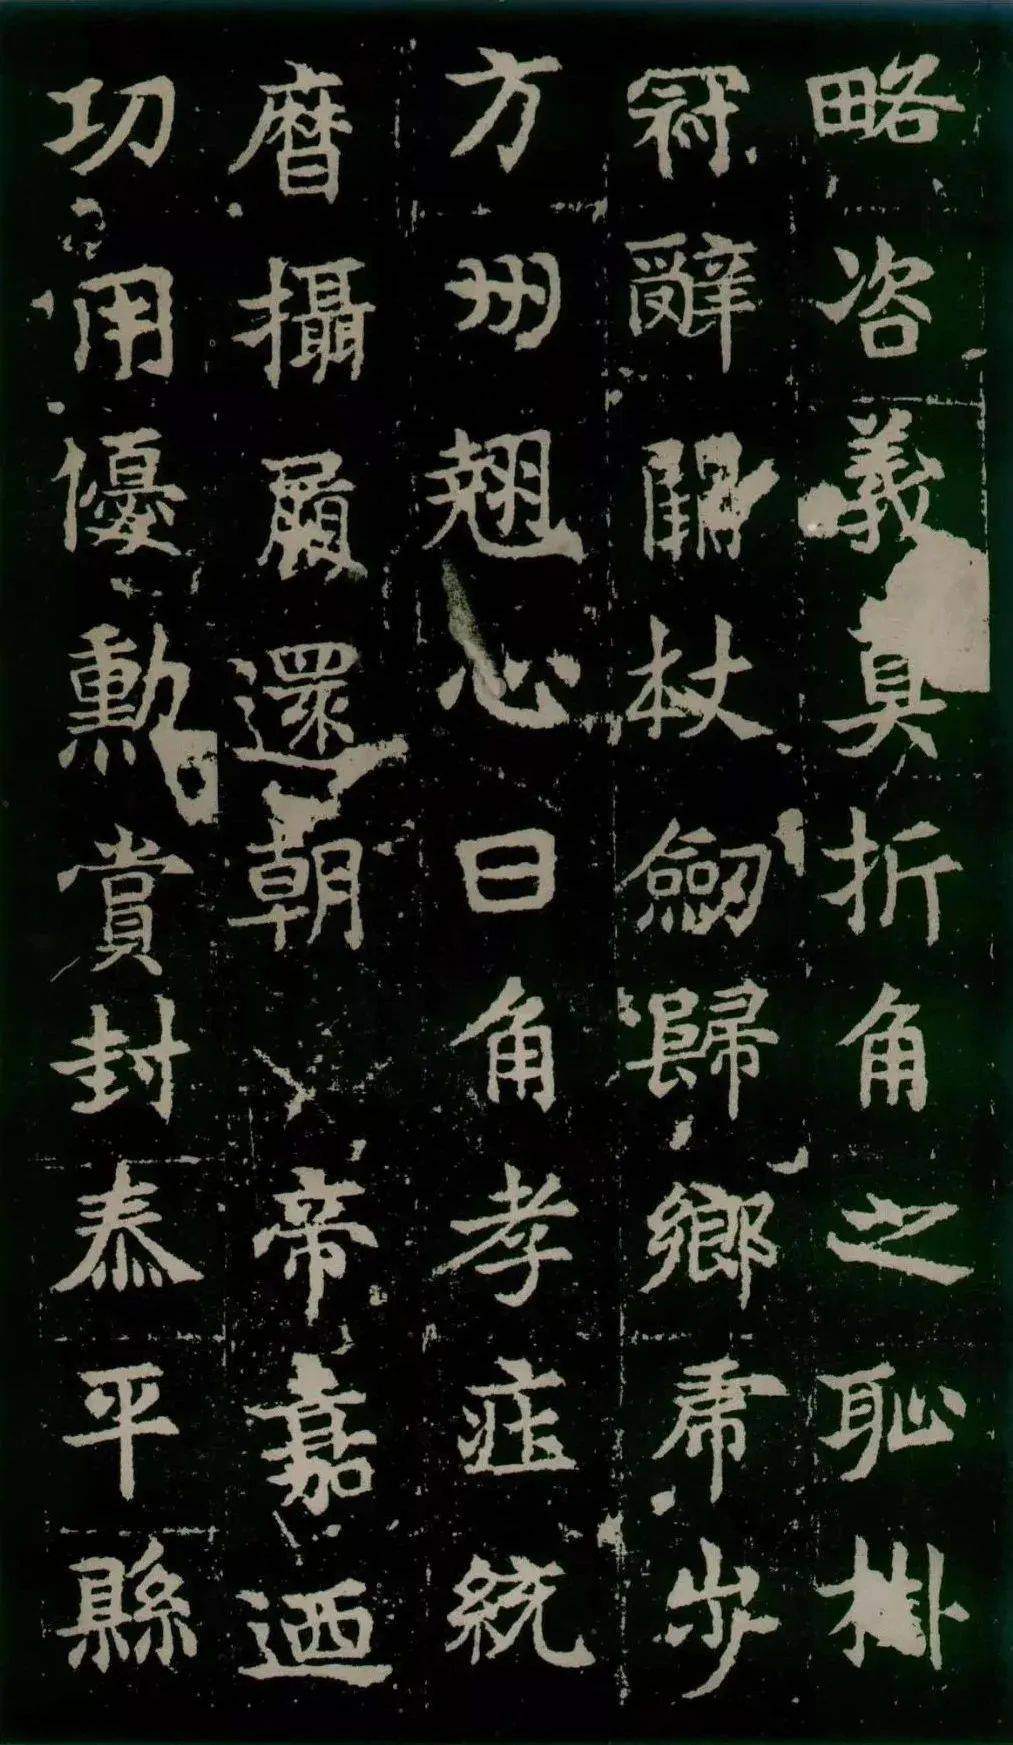 略咨義真折角之恥掛
冠辭闕杖劒歸鄉虎步
方州翹心日角孝莊統
曆攝履還朝帝嘉迺
功用優勳賞封泰平縣